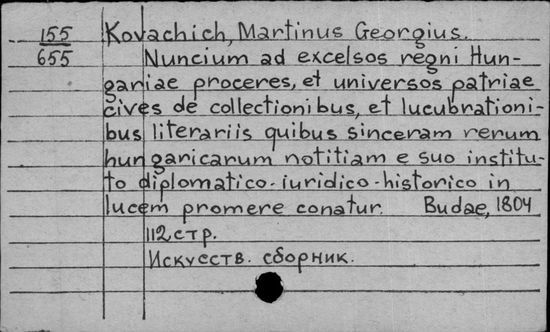 155 Kovachich, Martinus Georgius.
655 Nuncium ad excelsos regni Hun-
gariae proceres, et universos patriae
cives de collectionibus, et lucubrationi-
bus literariis quibus sinceram rerum
hungaricarum notitiam e suo institu-
to diplomatico-iuridico-historico in
lucem promere conatur. Budae, 1804
112 стр.
Искусств. сборник.